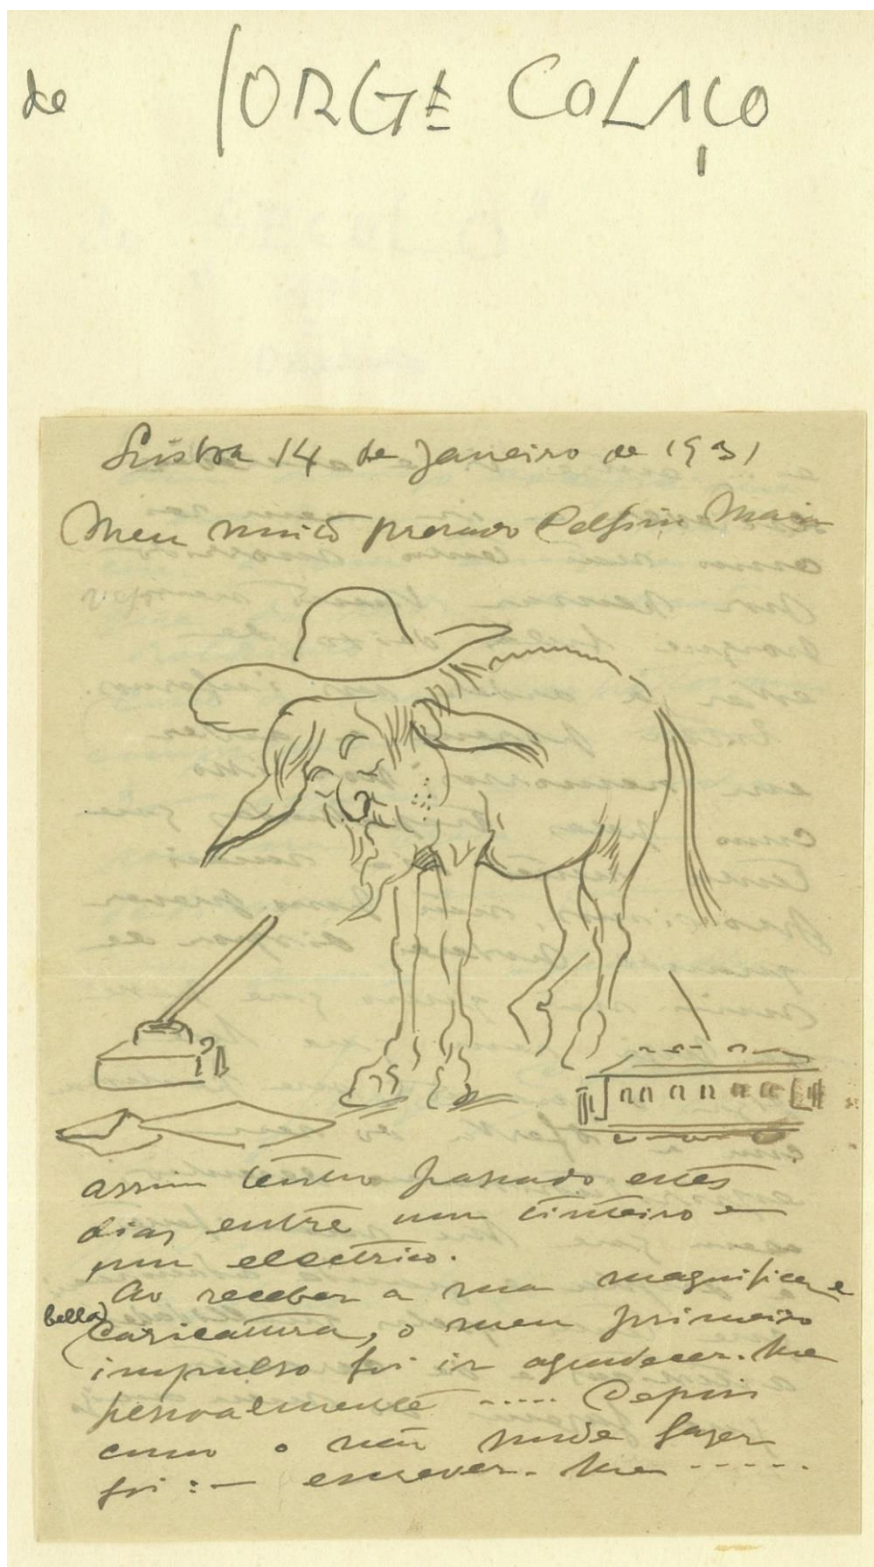 de JORGE COLAÇO
Lisboa 14 de Janeiro de 1931
Meu muito presado Delfim Maia
assim tenho passado estes
dias entre um tinteiro e
um electrico.
Ao receber a sua magnifica e
bella
caricatura, o meu primeiro
impulso foi ir agradecer-lhe
pessoalmente ..... Depois
como o não pude fazer
foi: — escrever-lhe .....